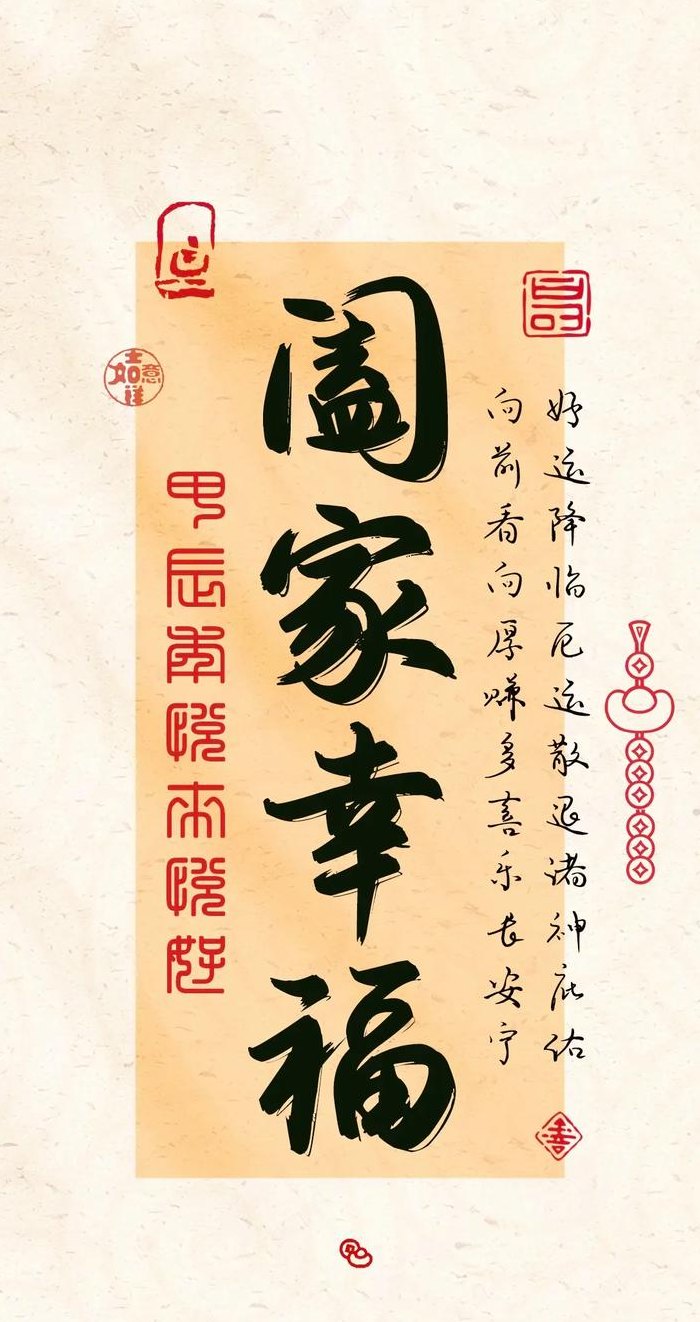 昌
好运降临厄运散退诸神庇佑
向前看向厚赚多喜乐长安宁
阖家幸福
甲辰年来好
吉祥如意